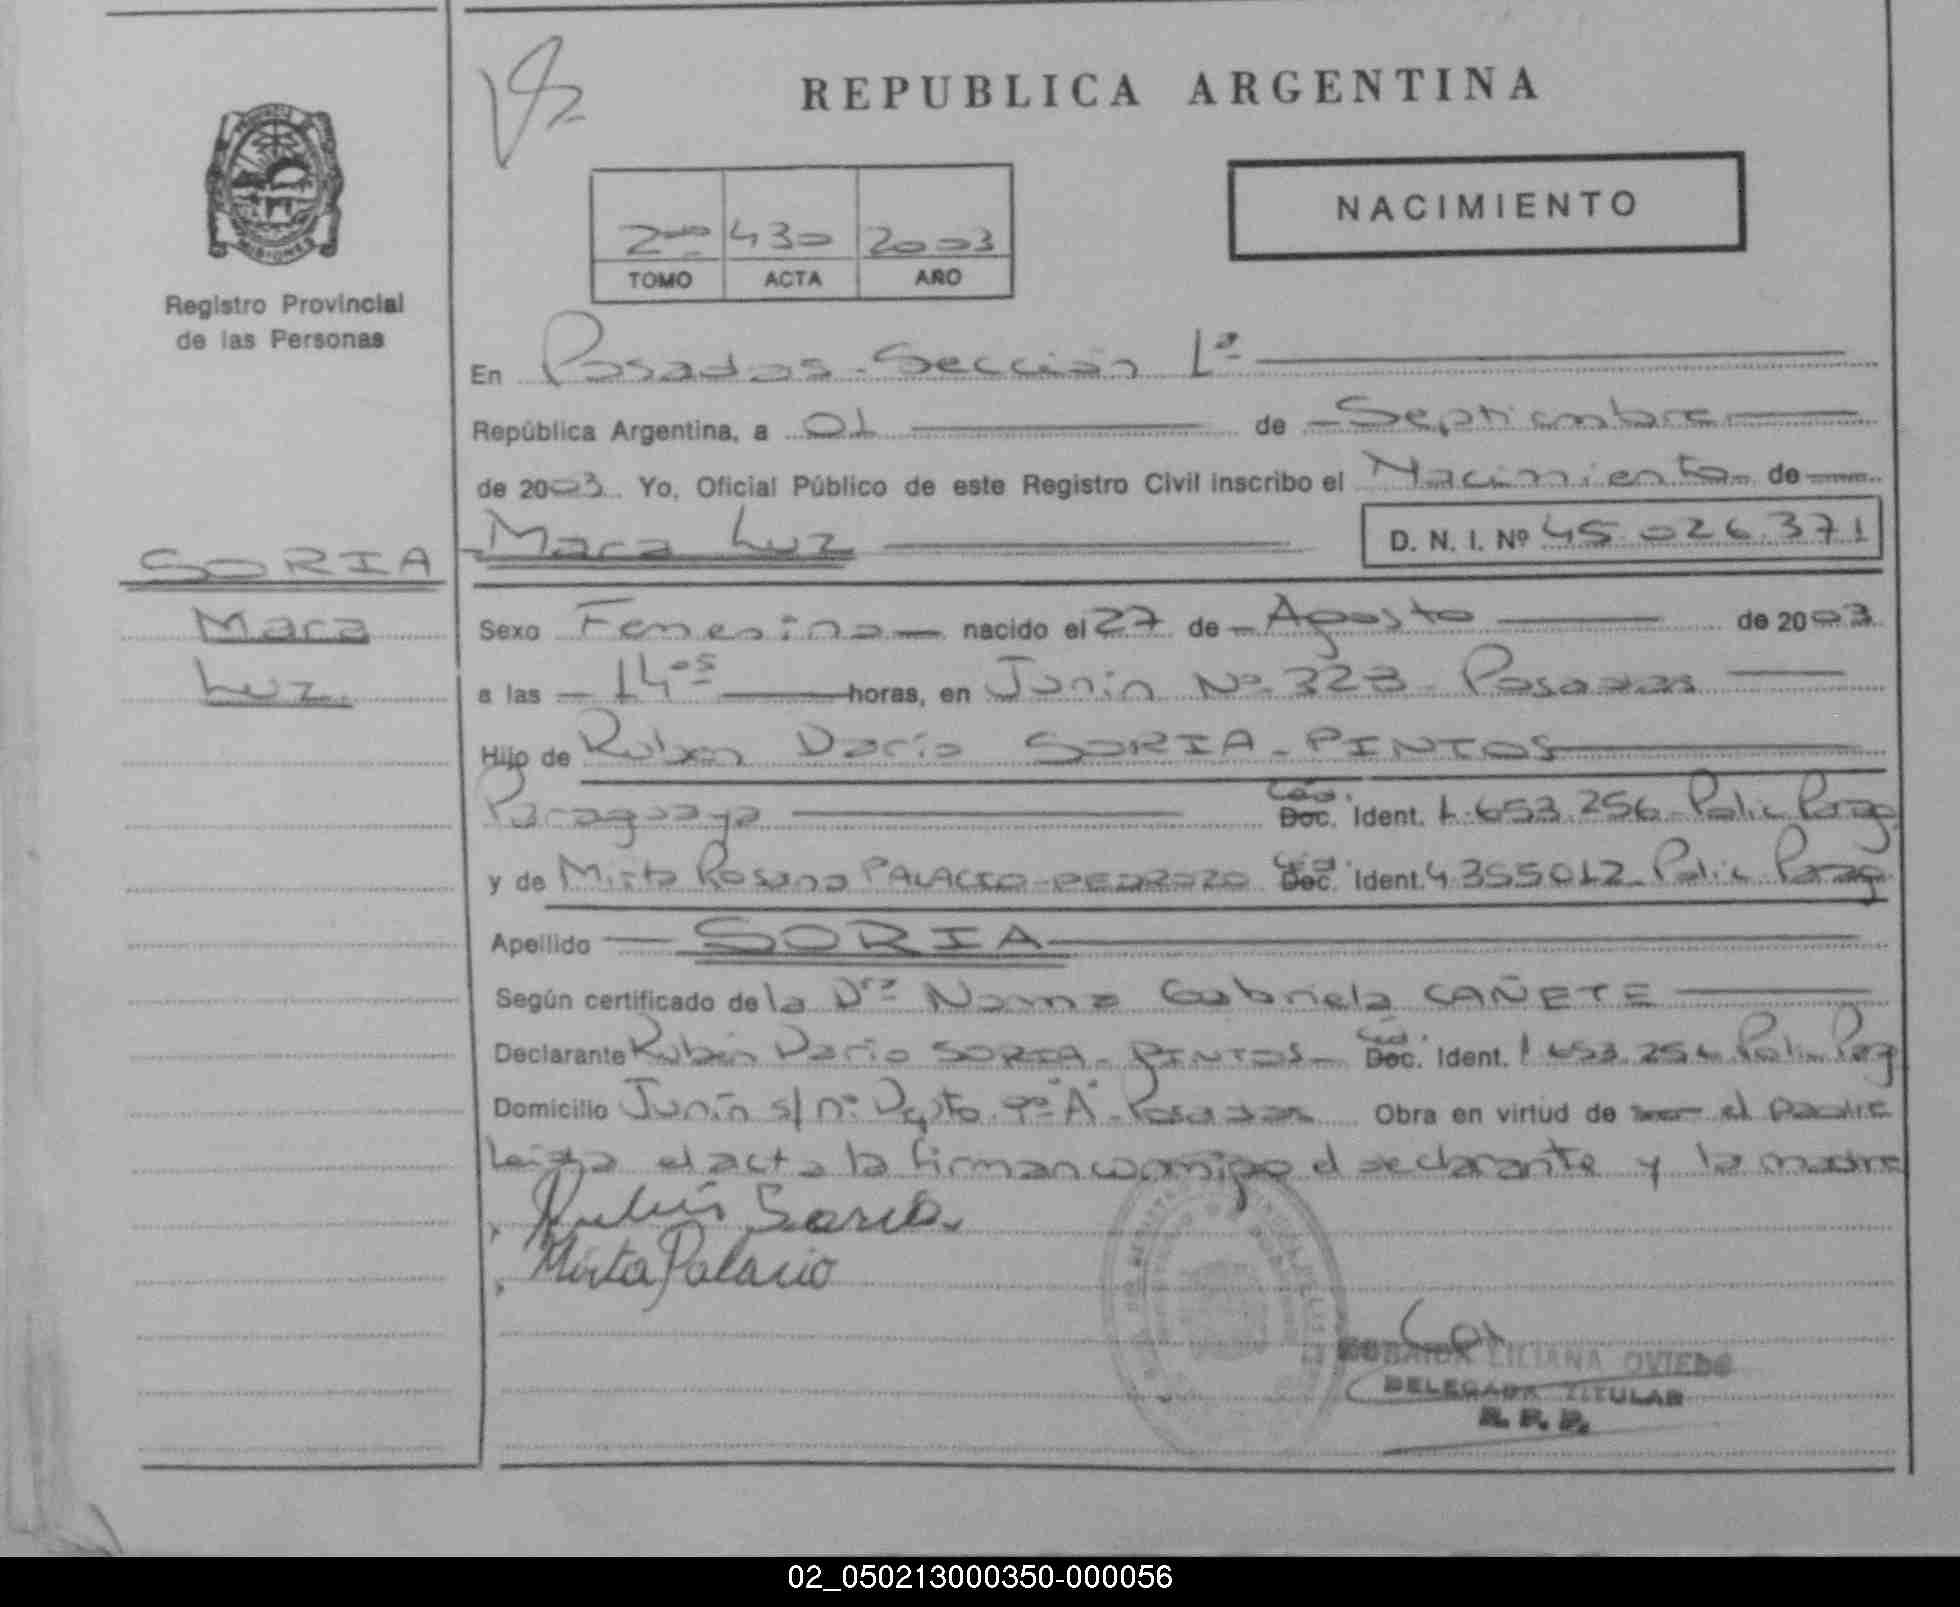 REPUBLICA ARGENTINA
NACIMIENTO
2 430 2003
TOMO ACTA AÑO
Registro Provincial
de las Personas
En Posadas-Sección 1ª
República Argentina, a 01 de Septiembre
de 2003. Yo, Oficial Público de este Registro Civil inscribo el Nacimiento de
Mara Luz D. N. I. Nº 45.026.371
SORIA
Mara
Luz
Sexo Femenino nacido el 27 de Agosto de 2003
a las 14 horas, en Junín Nº 323 - Posadas
Hijo de Ruben Dario SORIA-PINTOS
Paraguaya Céd. Doc. Ident. 1.653.256 Polic Parag
y de Mirta Rosana PALACIO-PEDROZO Céd. Doc. Ident. 4355012 Polic Parag
Apellido SORIA
Según certificado de la Drª Norma Gabriela CAÑETE
Declarante Rubén Dario SORIA-PINTOS Céd. Doc. Ident. 1.653.256 Polic Parg
Domicilio Junín s/nº Dpto. 9º "A" Posadas Obra en virtud de ser el padre
Leída el acta la firman conmigo el declarante y la madre
Rubén Soria
Mirta Palacio
LILIANA OVIEDO
DELEGADA TITULAR
R. P. P.
02_050213000350-000056